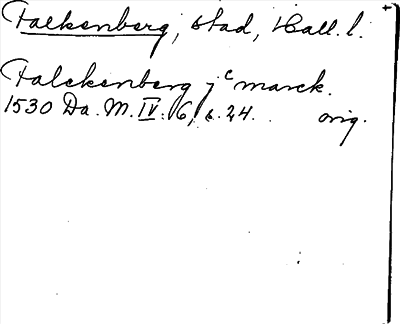 Falkenberg, stad, Hall. l.
Falckenberg j c marck.
1530 Da. M. IV. 6, s. 24. orig.